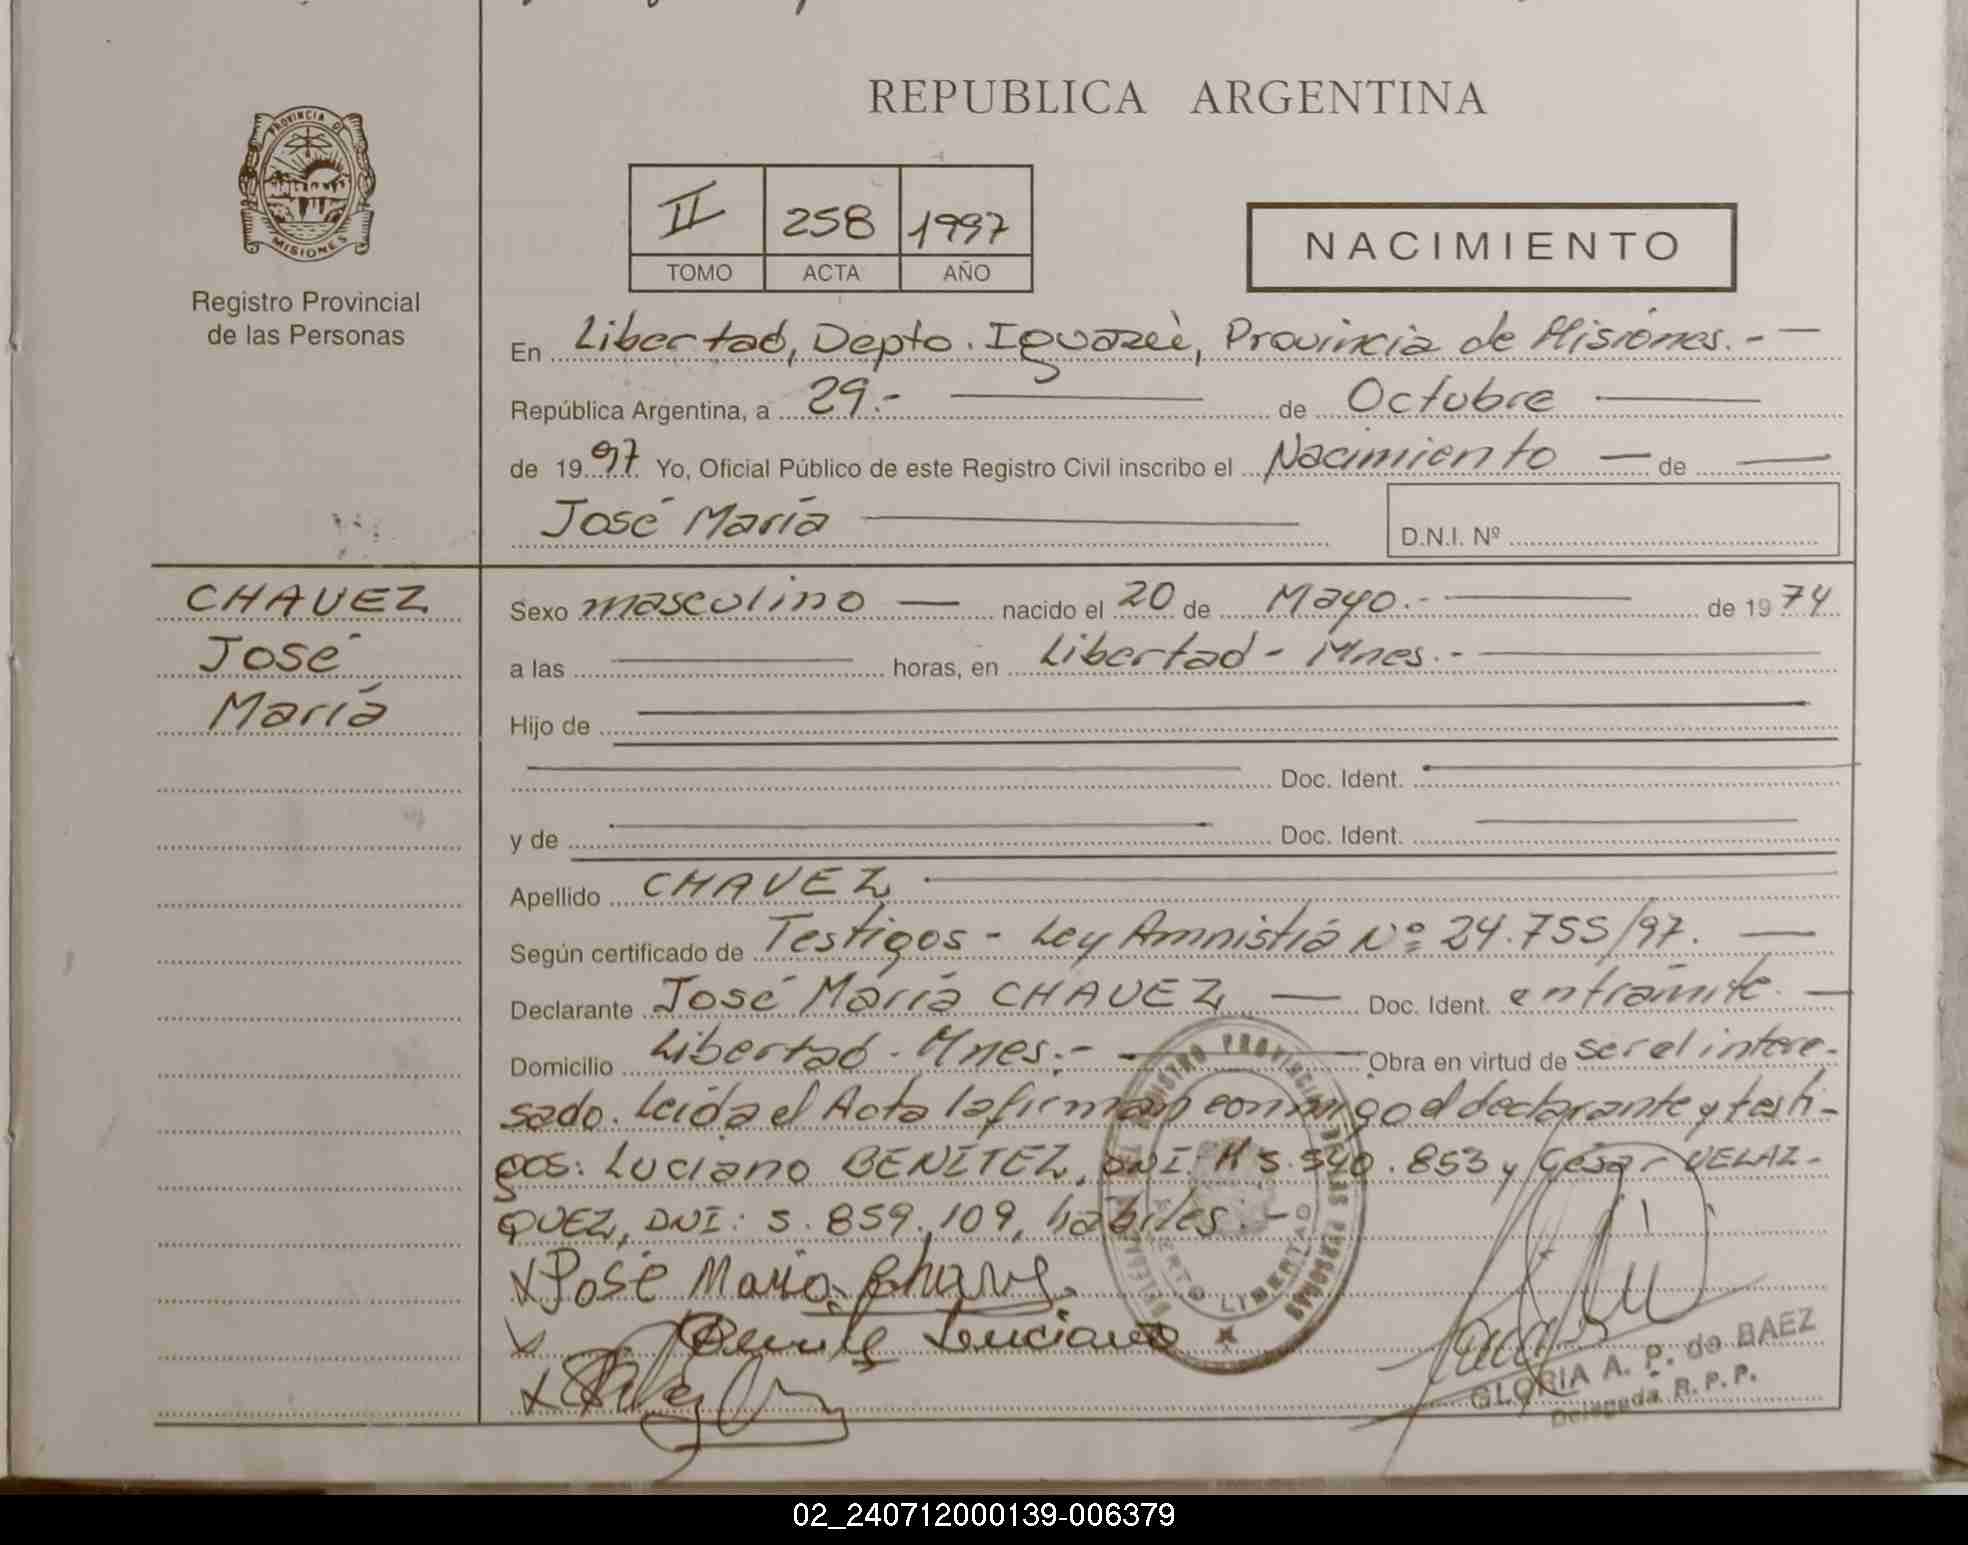 REPUBLICA ARGENTINA
PROVINCIA DE
MISIONES
Registro Provincial
de las Personas
II 258 1997
TOMO ACTA AÑO
NACIMIENTO
En Libertad, Depto. Iguazú, Provincia de Misiones.-
República Argentina, a 29.- de Octubre
de 1997 Yo, Oficial Público de este Registro Civil inscribo el Nacimiento de
José María
D.N.I. Nº
CHAVEZ
José
María
Sexo masculino nacido el 20 de Mayo.- de 1974
a las horas, en Libertad - Mnes.-
Hijo de
Doc. Ident.
y de Doc. Ident.
Apellido CHAVEZ
Según certificado de Testigos - Ley Amnistiá Nº 24.755/97.
Declarante José María CHAVEZ Doc. Ident. en trámite.
Domicilio Libertad - Mnes.- Obra en virtud de ser el intere-
sado. Leída el Acta la firman conmigo el declarante y testi-
gos: Luciano BENÍTEZ, DNI: M 5.540.853 y César VELAZ-
QUEZ, DNI: 5.859.109, hábiles.-
REGISTRO PROVINCIAL DE LAS PERSONAS
PUERTO LIBERTAD
José María Chavez
Luciano
GLORIA A. P. de BAEZ
Delegada R. P. P.
02_240712000139-006379